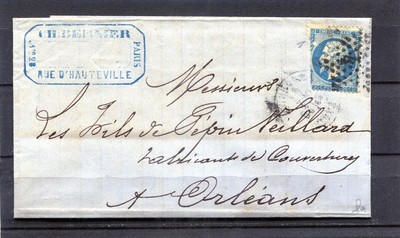 PARIS
RUE D'HAUTEVILLE
Messieurs
Les fils de Pépin Veillard
fabricants de Couvertures
A Orléans